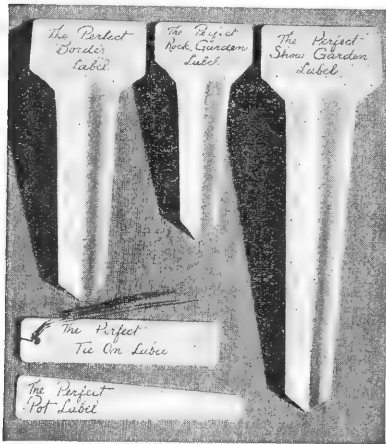 The Perfect
Border
Label.
The Perfect
Rock Garden
Label.
The Perfect
Show Garden
Label.
The Perfect
Tie On Label
The Perfect
Pot Label